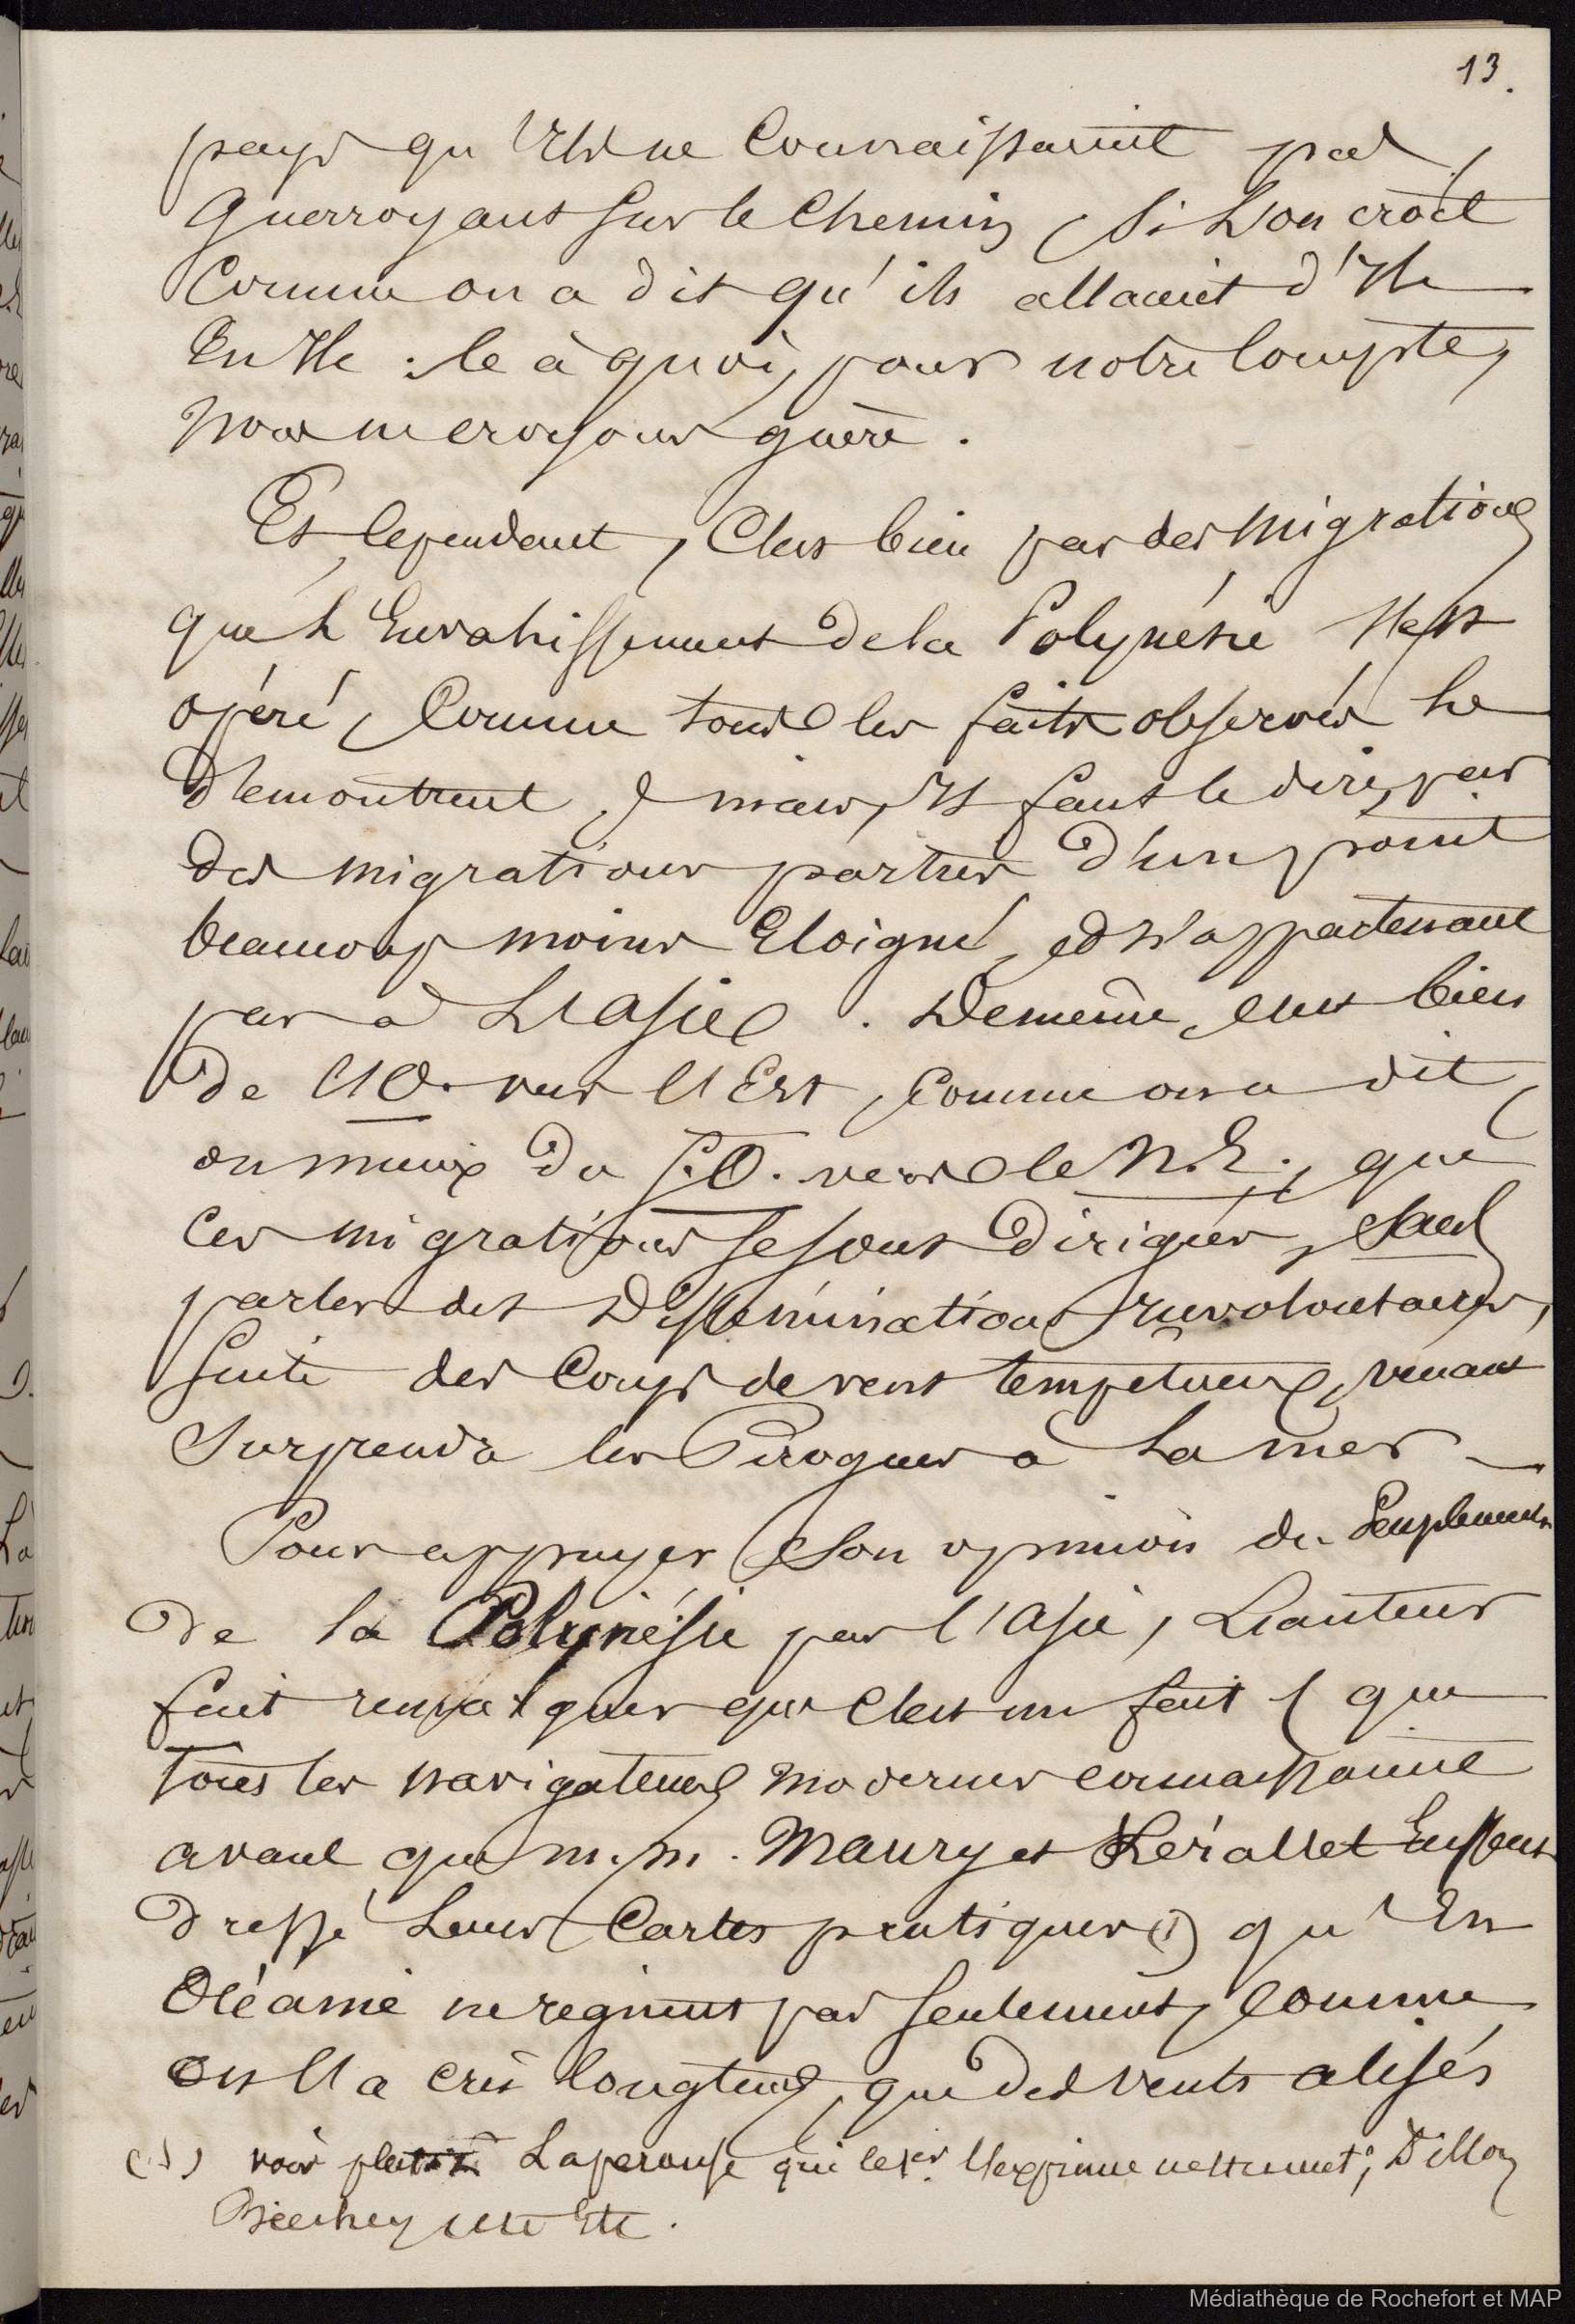 13.
pays qu'ils ne connaissaient pas,
guerroyant sur le chemin, si l'on croit
comme on a dit qu'ils allaient d'île
en île : ce à quoi, pour notre compte,
nous ne croyons guère.
Et cependant, c'est bien par des migrations
que l'envahissement de la Polynésie s'est
opéré, comme tous les faits observés le
démontrent, mais, il faut le dire, par
des migrations parties d'un point
beaucoup moins éloigné, et n'appartenant
pas à l'asie. De même, c'est bien
de l'O. vers l'Est, comme on a dit,
ou mieux du S.O. vers le N.E., que
ces migrations se sont dirigées, sans
parler des disséminations involontaires,
suite des coups de vent tempetueux, venant
surprendre les Pirogues à la mer_
Pour appuyer son opinion du Peuplement
de la Polynésie par l'asie, L'auteur
fait remarquer que c'est un fait que
tous les navigateurs modernes connaissaient
avant que m.m. Maury et Kérallet eussent
dressé leurs Cartes pratiques (1) qu'En
Océanie ne regnent pas seulement, comme
on l'a cru longtems, que des vents alisés
(1) voir Laperouse qui le 1er l'exprime nettement; Dillon
Beechey etc Etc.